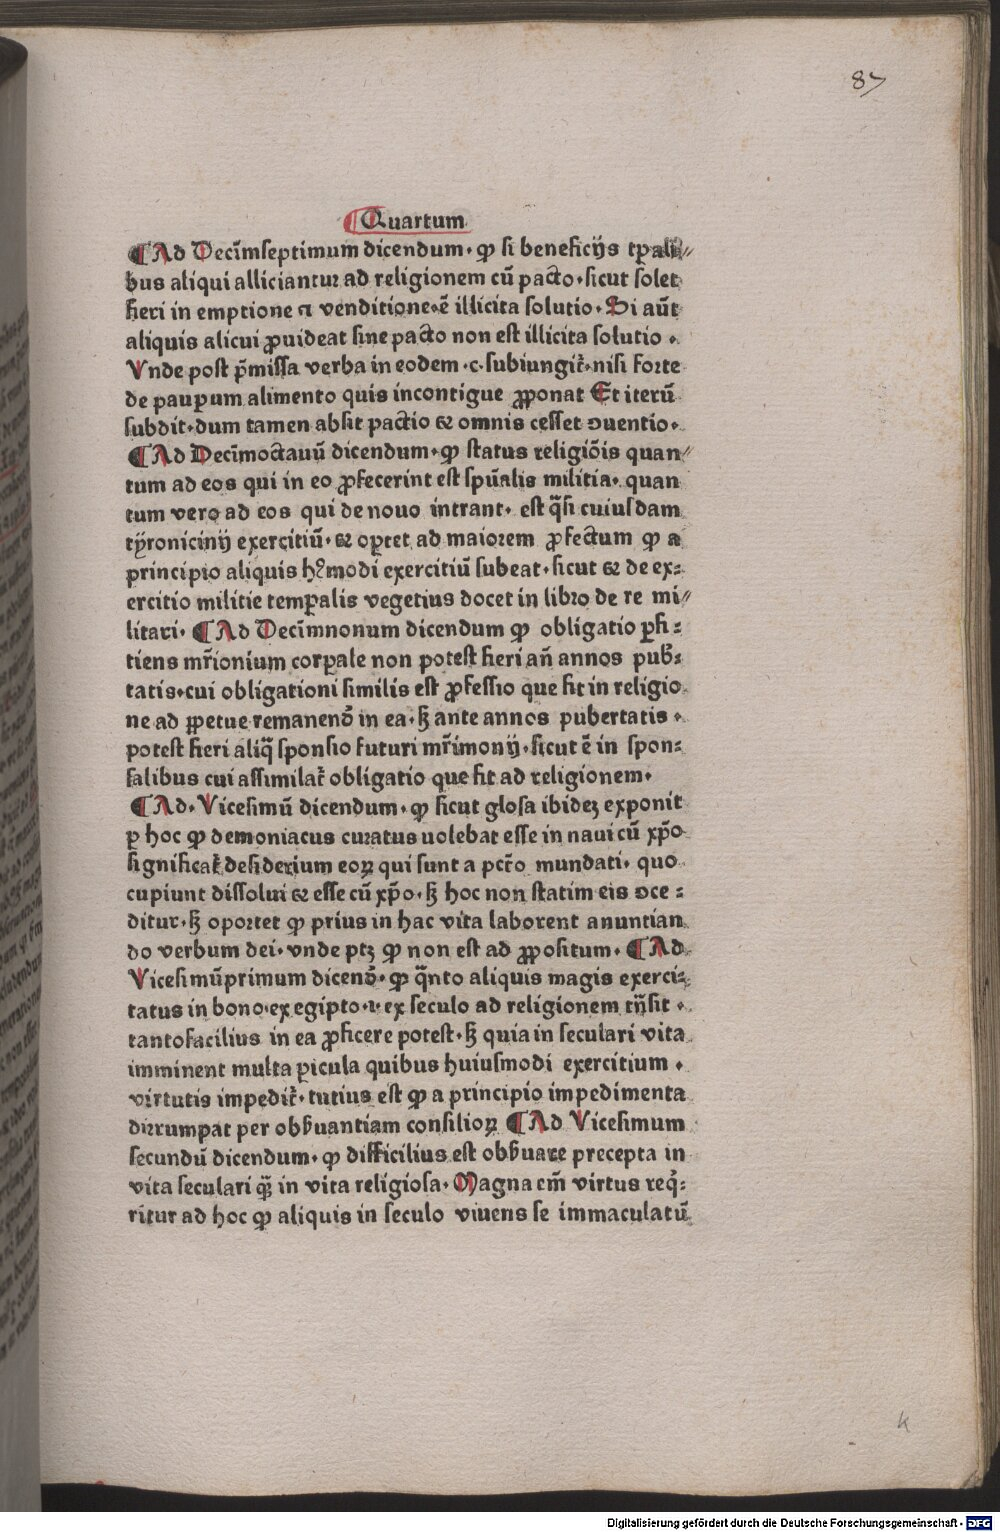 87
¶Quartum
¶Ad Decīmseptimum dicendum· ꝙ si beneficijs tꝑali⸗
bus aliqui alliciantur ad religionem cū pacto·sicut solet
fieri in emptione ⁊ venditione·ē illicita solutio· Si aūt
aliquis alicui ꝓuideat sine pacto non est illicita solutio ·
Vnde post p̄missa verba in eodem ·c· subiungit᷑·nisi forte
de pauꝑum alimento quis incontigue ꝓponat Et iterū
subdit·dum tamen absit pactio ⁊ omnis cesset ꝯuentio·
¶Ad Decīmoctauū dicendum·ꝙ status religiōis quan⸗
tum ad eos qui in eo ꝓfecerint est spūalis militia· quan
tum vero ad eos qui de nouo intrant· est q̄si cuiusdam
tyronicinij exercitiū· ⁊ oꝑtet ad maiorem ꝓfectum ꝙ a
principio aliquis hꝰmodi exercitiū subeat·sicut ⁊ de ex⸗
ercitio militie temꝑalis vegetius docet in libro de re mi⸗
litari· ¶Ad Decīmnonum dicendum ꝙ obligatio ꝑfi⸗
tiens mr̄ionium corꝑale non potest fieri an̄ annos pub̄⸗
tatis·cui obligationi similis est ꝓfessio que fit in religio
ne ad ꝑpetue remanend̄ in ea·ꝫ ante annos pubertatis ·
potest fieri aliq̄ sponsio futuri mr̄imonij·sicut ē in spon⸗
salibus cui assimilat᷑ obligatio que fit ad religionem·
¶Ad· Vicesimū dicendum·ꝙ sicut glosa ibideꝫ exponit
ꝑ hoc ꝙ demoniacus curatus uolebat esse in naui cū xp̄o
significat᷑ desiderium eoꝝ qui sunt a pctō mundati· quo
cupiunt dissolui ⁊ esse cū xp̄o·ꝫ hoc non statim eis ꝯce⸗
ditur·ꝫ oportet ꝙ prius in hac vita laborent anuntian
do verbum dei·vnde ptꝫ ꝙ non est ad ꝓpositum· ¶Ad
Vicesimūprimum dicend̄·ꝙ q̄nto aliquis magis exerci⸗
tatus in bono·ex egipto·i· ex seculo ad religionem tn̄sit ·
tantofacilius in ea ꝓficere potest·ꝫ quia in seculari vita
imminent multa ꝑicula quibus huiusmodi exercitium ·
virtutis impedit᷑·tutius est ꝙ a principio impedimenta
dirrumpat per obb̄uantiam consilioꝝ ¶Ad Vicesimum
secundū dicendum·ꝙ difficilius est obb̄uare precepta in
vita seculari q̄ꝫ in vita religiosa· Magna em̄ virtus req̇⸗
ritur ad hoc ꝙ aliquis in seculo viuens se immaculatū
k
Digitalisierung gefördert durch die Deutsche Forschungsgemeinschaft - DFG